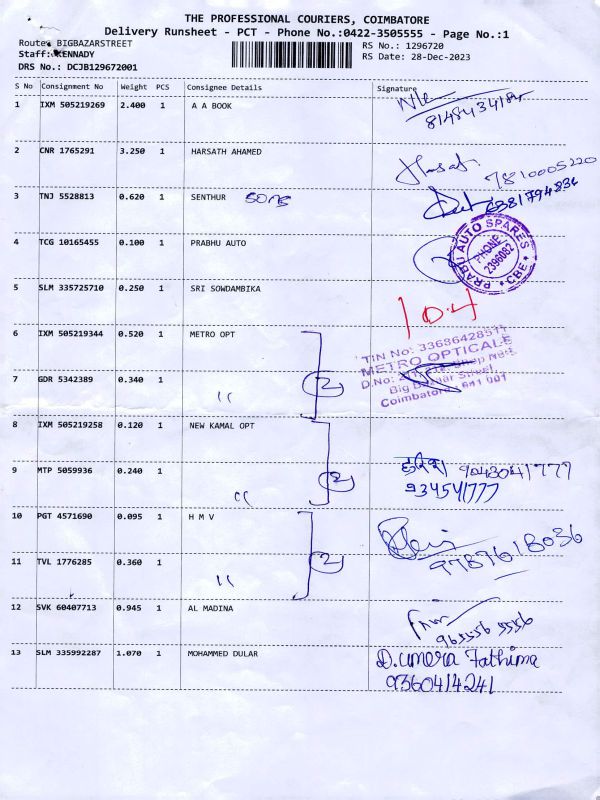 THE PROFESSIONAL COURIERS, COIMBATORE
Delivery Runsheet - PCT - Phone No.:0422-3505555 - Page No.:1
Route: BIGBAZARSTREET
Staff: KENNADY
DRS No.: DCJB129672001
RS No.: 1296720
RS Date: 28-Dec-2023
S No Consignment No Weight PCS Consignee Details Signature
1 IXM 505219269 2.400 1 A A BOOK
8148434184
2 CNR 1765291 3.250 1 HARSATH AHAMED
Harsath 7810005220
3 TNJ 5528813 0.620 1 SENTHUR sons
6381794836
4 TCG 10165455 0.100 1 PRABHU AUTO
PRABHU AUTO SPARES
PHONE
2396082
* CBE *
5 SLM 335725710 0.250 1 SRI SOWDAMBIKA
10.4
6 IXM 505219344 0.520 1 METRO OPT
TIN No: 33686428511
METRO OPTICALS
Big Bazaar Street,
Coimbatore - 641 001
7 GDR 5342389 0.340 1 " 2
8 IXM 505219258 0.120 1 NEW KAMAL OPT
9 MTP 5059936 0.240 1 " 2
9043041777
10 PGT 4571690 0.095 1 H M V
9787618036
11 TVL 1776285 0.360 1 " 2
12 SVK 60407713 0.945 1 AL MADINA
965556 5556
13 SLM 335992287 1.070 1 MOHAMMED DULAR
D.umera Fathima
9360414241